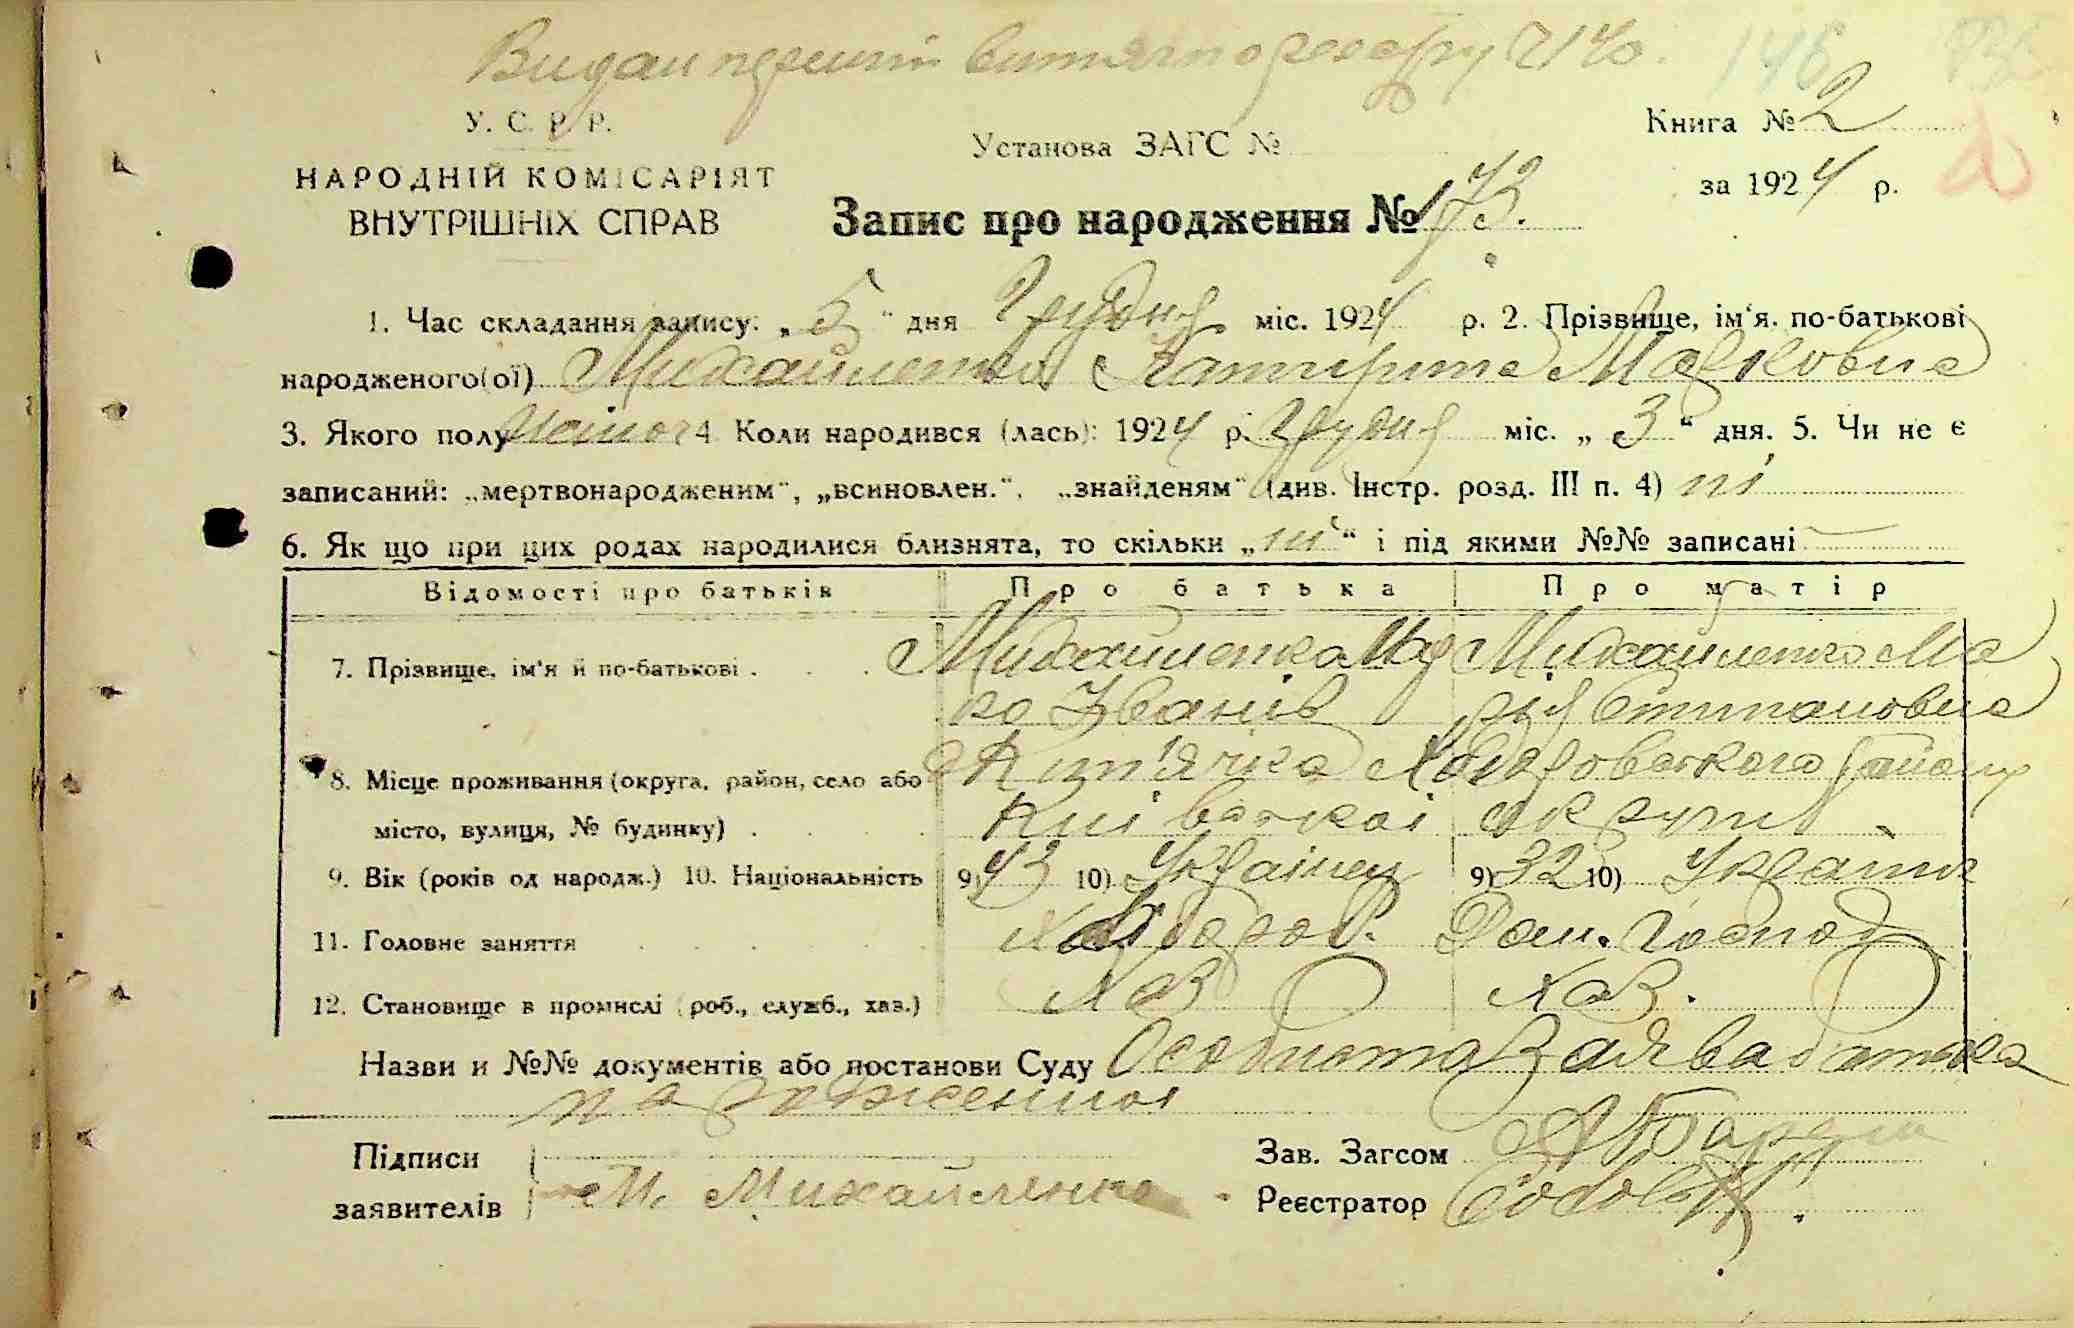 Видан перший витяг по реєстру 2140. 146
У. С. Р. Р.
Установа ЗАГС №
Книга № 2
НАРОДНІЙ КОМІСАРІЯТ
за 1924 р.
ВНУТРІШНІХ СПРАВ
Запис про народження № 173.
1. Час складання запису: „5“ дня Грудня міс. 1924 р. 2. Прізвище, ім'я, по-батькові
народженого(ої) Михайленко Катирина Марковна
3. Якого полу жіноч 4 Коли народився (лась): 1924 р. Грудня міс. „3“ дня. 5. Чи не є
записаний: „мертвонародженим“, „всиновлен.“, „знайденям“ (див. Інстр. розд. III п. 4) ні
6. Як що при цих родах народилися близнята, то скільки „ні“ і під якими №№ записані —
Відомості про батьків Про батька Про матір
7. Прізвище, ім'я й по-батькові . . . Михайленко Мар Михайленко Ма
ко Іванів рія Степановна
8. Місце проживання (округа, район, село або місто, вулиця, № будинку) . . . Кип'ячка Ходоровського району
Київської округи
9. Вік (років од народж.) 10. Національність 9) 43 10) Українец 9) 32 10) Україн
11. Головне заняття . . . Хлібороб. Дом. господ
12. Становище в промислі (роб., служб., хаз.) Хаз Хаз.
Назви и №№ документів або постанови Суду Особиста Заява батька
нарожження
Підписи
заявителів М. Михайленко
Зав. Загсом
Реєстратор